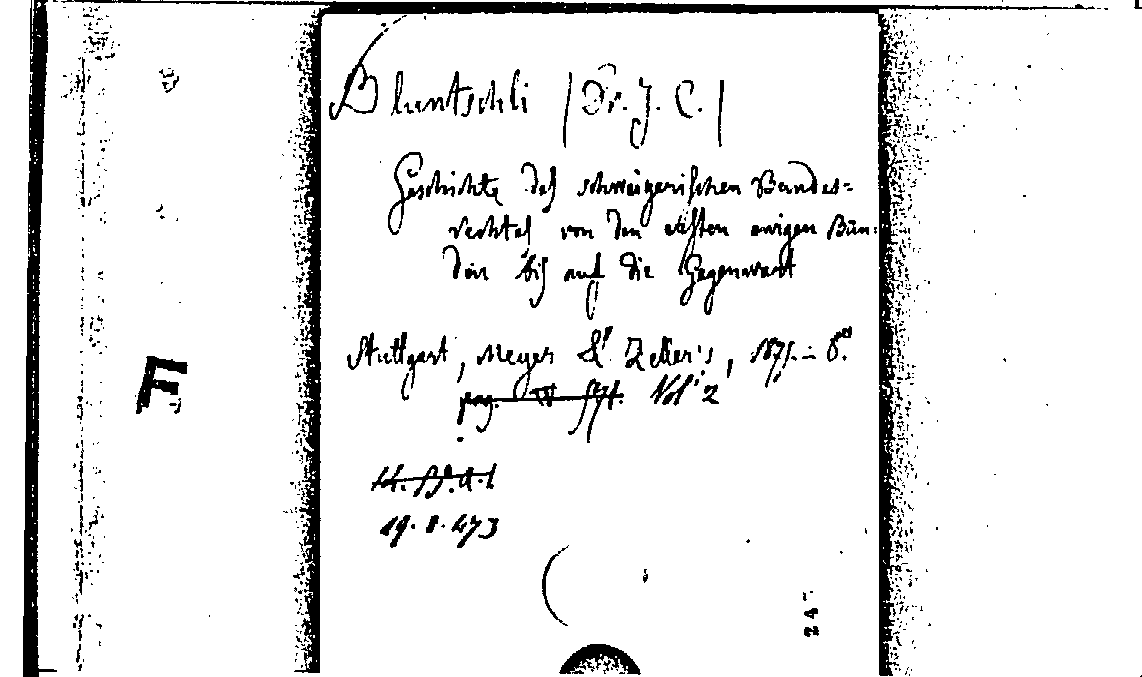 Bluntschli (Dr. J. C.)
Geschichte des schweizerischen Bundes=
rechtes von den ersten ewigen Bün:
den bis auf die Gegenwart
Stuttgart, Meyer & Zeller's, 1875. - 8º.
Vol: 2
19. B. 473
E
247